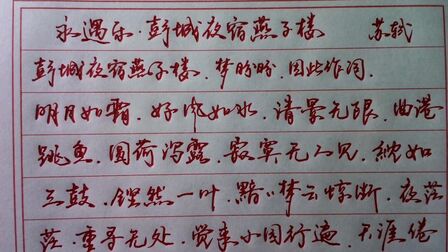 永遇乐·彭城夜宿燕子楼 苏轼
彭城夜宿燕子楼，梦盼盼，因此作词。
明月如霜，好风如水，清景无限。曲港
跳鱼，圆荷泻露，寂寞无人见。紞如
三鼓，铿然一叶，黯黯梦云惊断。夜茫
茫，重寻无处，觉来小园行遍。天涯倦